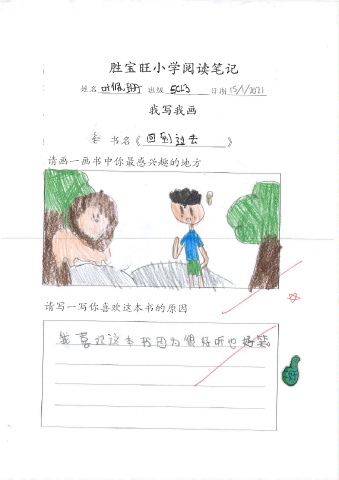 胜宝旺小学阅读笔记
姓名 叶佩珊 班级 5CL3 日期 15/1/2021
我写我画
书名《 回到过去 》
请画一画书中你最感兴趣的地方
请写一写你喜欢这本书的原因
我喜欢这本书因为很好听也好笑